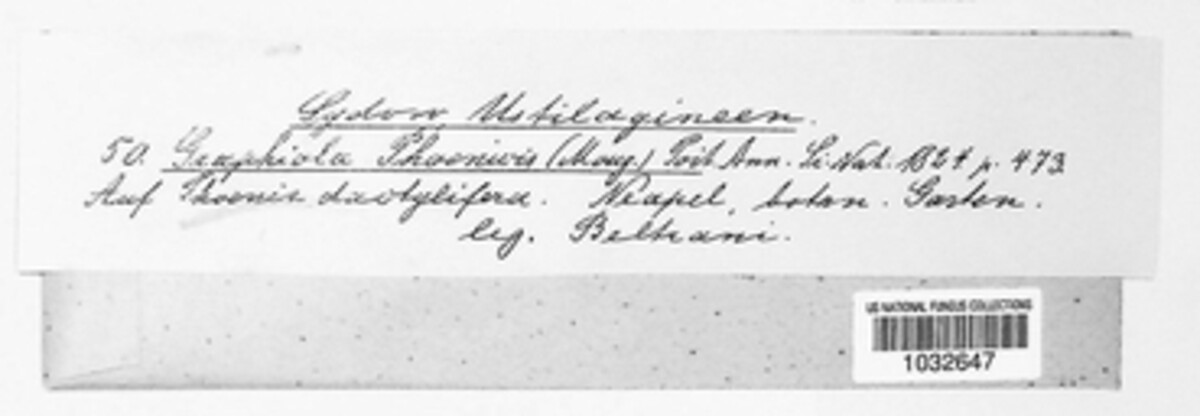 Sydow, Ustilagineen.
50. Graphiola Phoenicis (Moug.) Poit. Ann. Sc. Nat. 1824 p. 473.
Auf Phoenix dactylifera. Neapel, botan. Garten.
leg. Beltrani.
US NATIONAL FUNGUS COLLECTIONS
1032647